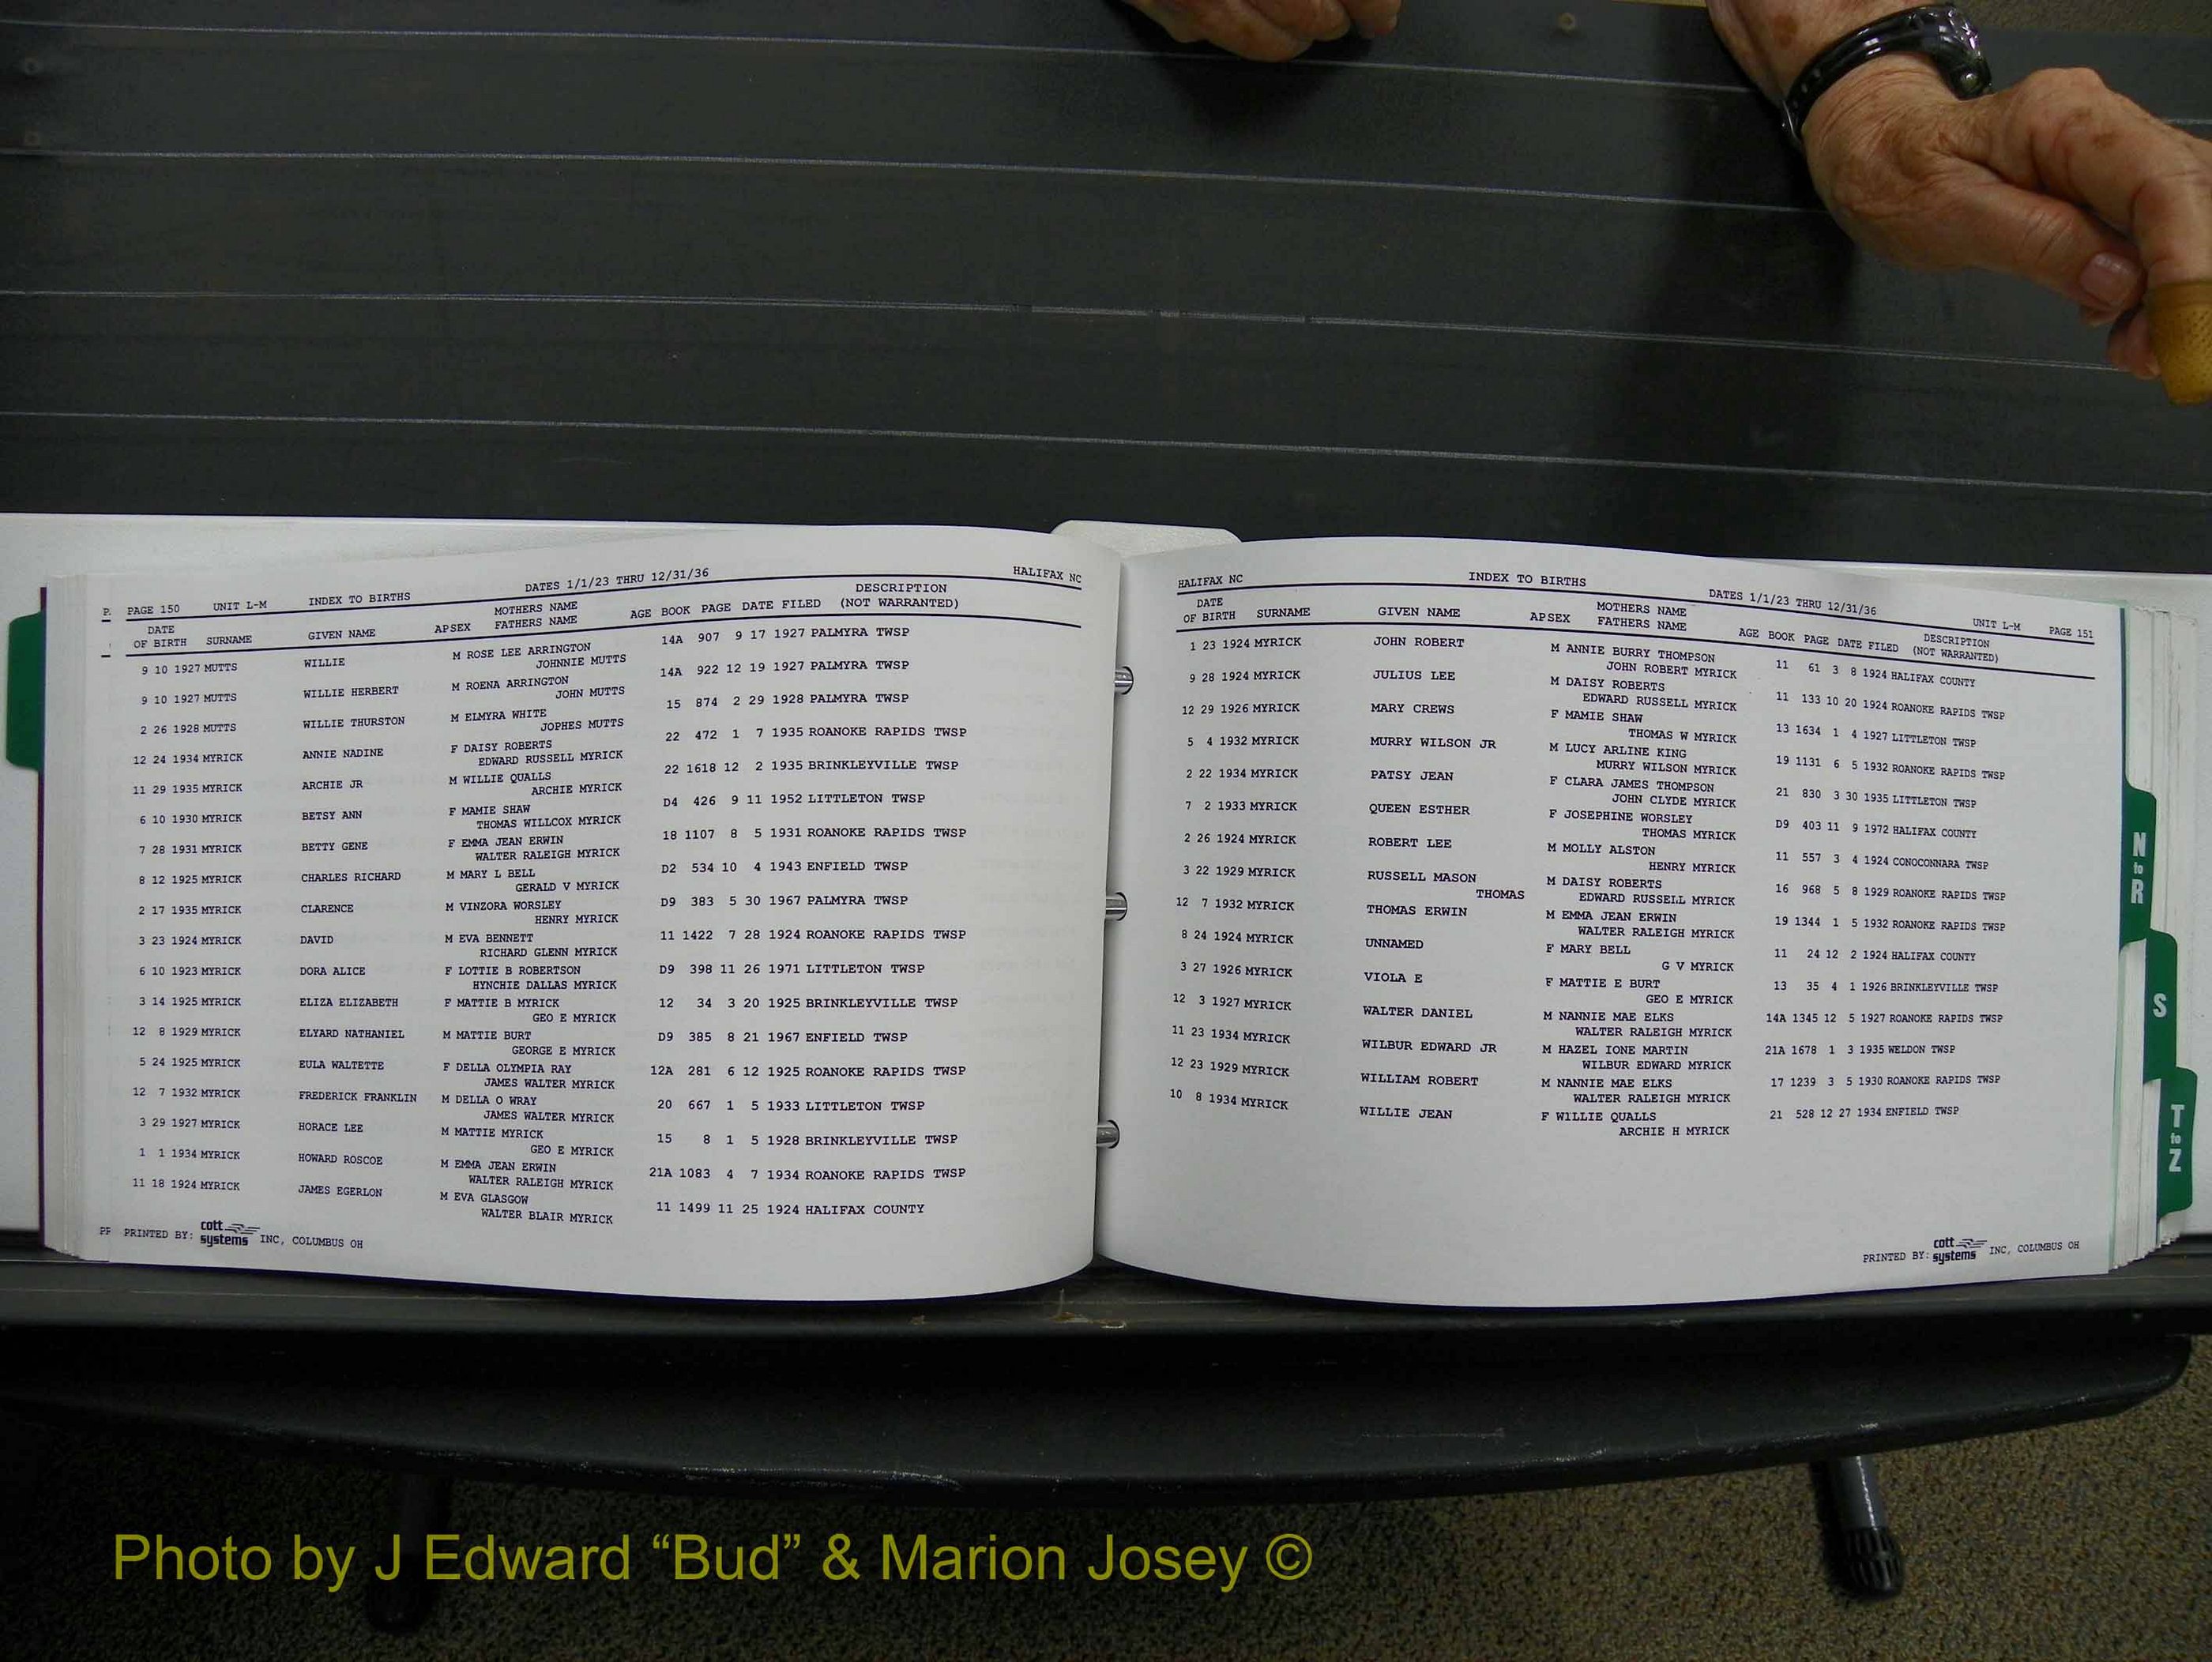 P. PAGE 150 UNIT L-M INDEX TO BIRTHS DATES 1/1/23 THRU 12/31/36 HALIFAX NC
DATE OF BIRTH SURNAME GIVEN NAME APSEX MOTHERS NAME FATHERS NAME AGE BOOK PAGE DATE FILED DESCRIPTION (NOT WARRANTED)
9 10 1927 MUTTS WILLIE M ROSE LEE ARRINGTON 14A 907 9 17 1927 PALMYRA TWSP
JOHNNIE MUTTS
9 10 1927 MUTTS WILLIE HERBERT M ROENA ARRINGTON 14A 922 12 19 1927 PALMYRA TWSP
JOHN MUTTS
2 26 1928 MUTTS WILLIE THURSTON M ELMYRA WHITE 15 874 2 29 1928 PALMYRA TWSP
JOPHES MUTTS
12 24 1934 MYRICK ANNIE NADINE F DAISY ROBERTS 22 472 1 7 1935 ROANOKE RAPIDS TWSP
EDWARD RUSSELL MYRICK
11 29 1935 MYRICK ARCHIE JR M WILLIE QUALLS 22 1618 12 2 1935 BRINKLEYVILLE TWSP
ARCHIE MYRICK
6 10 1930 MYRICK BETSY ANN F MAMIE SHAW D4 426 9 11 1952 LITTLETON TWSP
THOMAS WILLCOX MYRICK
7 28 1931 MYRICK BETTY GENE F EMMA JEAN ERWIN 18 1107 8 5 1931 ROANOKE RAPIDS TWSP
WALTER RALEIGH MYRICK
8 12 1925 MYRICK CHARLES RICHARD M MARY L BELL D2 534 10 4 1943 ENFIELD TWSP
GERALD V MYRICK
2 17 1935 MYRICK CLARENCE M VINZORA WORSLEY D9 383 5 30 1967 PALMYRA TWSP
HENRY MYRICK
3 23 1924 MYRICK DAVID M EVA BENNETT 11 1422 7 28 1924 ROANOKE RAPIDS TWSP
RICHARD GLENN MYRICK
6 10 1923 MYRICK DORA ALICE F LOTTIE B ROBERTSON D9 398 11 26 1971 LITTLETON TWSP
HYNCHIE DALLAS MYRICK
3 14 1925 MYRICK ELIZA ELIZABETH F MATTIE B MYRICK 12 34 3 20 1925 BRINKLEYVILLE TWSP
GEO E MYRICK
12 8 1929 MYRICK ELYARD NATHANIEL M MATTIE BURT D9 385 8 21 1967 ENFIELD TWSP
GEORGE E MYRICK
5 24 1925 MYRICK EULA WALTETTE F DELLA OLYMPIA RAY 12A 281 6 12 1925 ROANOKE RAPIDS TWSP
JAMES WALTER MYRICK
12 7 1932 MYRICK FREDERICK FRANKLIN M DELLA O WRAY 20 667 1 5 1933 LITTLETON TWSP
JAMES WALTER MYRICK
3 29 1927 MYRICK HORACE LEE M MATTIE MYRICK 15 8 1 5 1928 BRINKLEYVILLE TWSP
GEO E MYRICK
1 1 1934 MYRICK HOWARD ROSCOE M EMMA JEAN ERWIN 21A 1083 4 7 1934 ROANOKE RAPIDS TWSP
WALTER RALEIGH MYRICK
11 18 1924 MYRICK JAMES EGERLON M EVA GLASGOW 11 1499 11 25 1924 HALIFAX COUNTY
WALTER BLAIR MYRICK
PRINTED BY: cott systems INC, COLUMBUS OH
HALIFAX NC INDEX TO BIRTHS DATES 1/1/23 THRU 12/31/36 UNIT L-M PAGE 151
DATE OF BIRTH SURNAME GIVEN NAME APSEX MOTHERS NAME FATHERS NAME AGE BOOK PAGE DATE FILED DESCRIPTION (NOT WARRANTED)
1 23 1924 MYRICK JOHN ROBERT M ANNIE BURRY THOMPSON 11 61 3 8 1924 HALIFAX COUNTY
JOHN ROBERT MYRICK
9 28 1924 MYRICK JULIUS LEE M DAISY ROBERTS 11 133 10 20 1924 ROANOKE RAPIDS TWSP
EDWARD RUSSELL MYRICK
12 29 1926 MYRICK MARY CREWS F MAMIE SHAW 13 1634 1 4 1927 LITTLETON TWSP
THOMAS W MYRICK
5 4 1932 MYRICK MURRY WILSON JR M LUCY ARLINE KING 19 1131 6 5 1932 ROANOKE RAPIDS TWSP
MURRY WILSON MYRICK
2 22 1934 MYRICK PATSY JEAN F CLARA JAMES THOMPSON 21 830 3 30 1935 LITTLETON TWSP
JOHN CLYDE MYRICK
7 2 1933 MYRICK QUEEN ESTHER F JOSEPHINE WORSLEY D9 403 11 9 1972 HALIFAX COUNTY
THOMAS MYRICK
2 26 1924 MYRICK ROBERT LEE M MOLLY ALSTON 11 557 3 4 1924 CONOCONNARA TWSP
HENRY MYRICK
3 22 1929 MYRICK RUSSELL MASON M DAISY ROBERTS 16 968 5 8 1929 ROANOKE RAPIDS TWSP
THOMAS EDWARD RUSSELL MYRICK
12 7 1932 MYRICK THOMAS ERWIN M EMMA JEAN ERWIN 19 1344 1 5 1932 ROANOKE RAPIDS TWSP
WALTER RALEIGH MYRICK
8 24 1924 MYRICK UNNAMED F MARY BELL 11 24 12 2 1924 HALIFAX COUNTY
G V MYRICK
3 27 1926 MYRICK VIOLA E F MATTIE E BURT 13 35 4 1 1926 BRINKLEYVILLE TWSP
GEO E MYRICK
12 3 1927 MYRICK WALTER DANIEL M NANNIE MAE ELKS 14A 1345 12 5 1927 ROANOKE RAPIDS TWSP
WALTER RALEIGH MYRICK
11 23 1934 MYRICK WILBUR EDWARD JR M HAZEL IONE MARTIN 21A 1678 1 3 1935 WELDON TWSP
WILBUR EDWARD MYRICK
12 23 1929 MYRICK WILLIAM ROBERT M NANNIE MAE ELKS 17 1239 3 5 1930 ROANOKE RAPIDS TWSP
WALTER RALEIGH MYRICK
10 8 1934 MYRICK WILLIE JEAN F WILLIE QUALLS 21 528 12 27 1934 ENFIELD TWSP
ARCHIE H MYRICK
PRINTED BY: cott systems INC, COLUMBUS OH
N to R
S
T to Z
Photo by J Edward “Bud” & Marion Josey ©